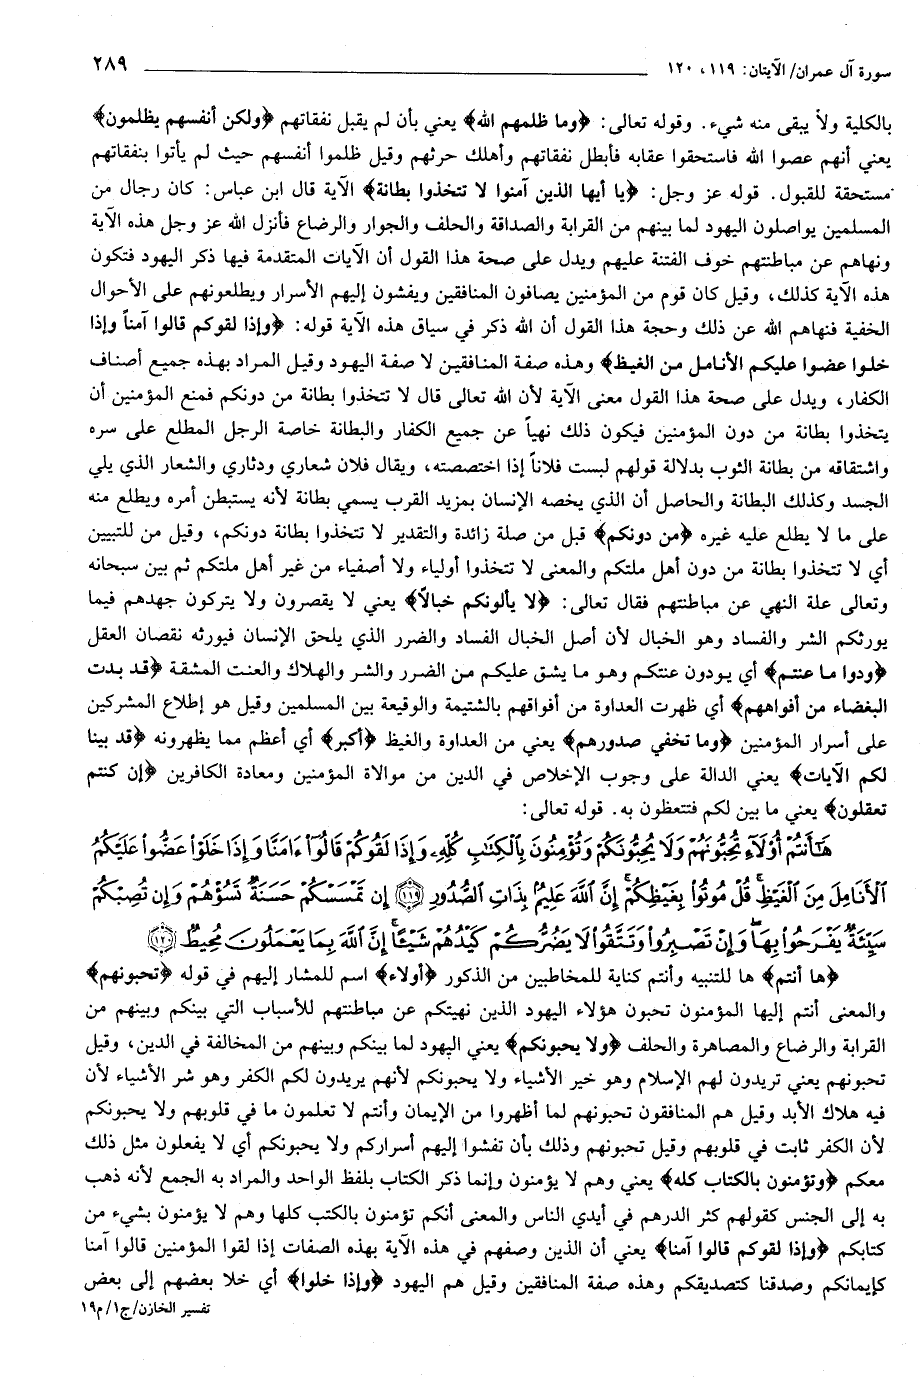 سورة آل عمران/ الآيتان: ١١٩، ١٢٠
٢٨٩
بالكلية ولا يبقى منه شيء. وقوله تعالى: ﴿وما ظلمهم الله﴾ يعني بأن لم يقبل نفقاتهم ﴿ولكن أنفسهم يظلمون﴾
يعني أنهم عصوا الله فاستحقوا عقابه فأبطل نفقاتهم وأهلك حرثهم وقيل ظلموا أنفسهم حيث لم يأتوا بنفقاتهم
مستحقة للقبول. قوله عز وجل: ﴿يا أيها الذين آمنوا لا تتخذوا بطانة﴾ الآية قال ابن عباس: كان رجال من
المسلمين يواصلون اليهود لما بينهم من القرابة والصداقة والحلف والجوار والرضاع فأنزل الله عز وجل هذه الآية
ونهاهم عن مباطنتهم خوف الفتنة عليهم ويدل على صحة هذا القول أن الآيات المتقدمة فيها ذكر اليهود فتكون
هذه الآية كذلك، وقيل كان قوم من المؤمنين يصافون المنافقين ويفشون إليهم الأسرار ويطلعونهم على الأحوال
الخفية فنهاهم الله عن ذلك وحجة هذا القول أن الله ذكر في سياق هذه الآية قوله: ﴿وإذا لقوكم قالوا آمناً وإذا
خلوا عضوا عليكم الأنامل من الغيظ﴾ وهذه صفة المنافقين لا صفة اليهود وقيل المراد بهذه جميع أصناف
الكفار، ويدل على صحة هذا القول معنى الآية لأن الله تعالى قال لا تتخذوا بطانة من دونكم فمنع المؤمنين أن
يتخذوا بطانة من دون المؤمنين فيكون ذلك نهياً عن جميع الكفار والبطانة خاصة الرجل المطلع على سره
واشتقاقه من بطانة الثوب بدلالة قولهم لبست فلاناً إذا اختصصته، ويقال فلان شعاري ودثاري والشعار الذي يلي
الجسد وكذلك البطانة والحاصل أن الذي يخصه الإنسان بمزيد القرب يسمي بطانة لأنه يستبطن أمره ويطلع منه
على ما لا يطلع عليه غيره ﴿من دونكم﴾ قبل من صلة زائدة والتقدير لا تتخذوا بطانة دونكم، وقيل من للتبيين
أي لا تتخذوا بطانة من دون أهل ملتكم والمعنى لا تتخذوا أولياء ولا أصفياء من غير أهل ملتكم ثم بين سبحانه
وتعالى علة النهي عن مباطنتهم فقال تعالى: ﴿لا يألونكم خبالاً﴾ يعني لا يقصرون ولا يتركون جهدهم فيما
يورثكم الشر والفساد وهو الخبال لأن أصل الخبال الفساد والضرر الذي يلحق الإنسان فيورثه نقصان العقل
﴿ودوا ما عنتم﴾ أي يودون عنتكم وهو ما يشق عليكم من الضرر والشر والهلاك والعنت المشقة ﴿قد بدت
البغضاء من أفواههم﴾ أي ظهرت العداوة من أفواقهم بالشتيمة والوقيعة بين المسلمين وقيل هو إطلاع المشركين
على أسرار المؤمنين ﴿وما تخفي صدورهم﴾ يعني من العداوة والغيظ ﴿أكبر﴾ أي أعظم مما يظهرونه ﴿قد بينا
لكم الآيات﴾ يعني الدالة على وجوب الإخلاص في الدين من موالاة المؤمنين ومعادة الكافرين ﴿إن كنتم
تعقلون﴾ يعني ما بين لكم فتتعظون به. قوله تعالى:
هَٰٓأَنتُمْ أُو۟لَآءِ تُحِبُّونَهُمْ وَلَا يُحِبُّونَكُمْ وَتُؤْمِنُونَ بِٱلْكِتَٰبِ كُلِّهِۦ وَإِذَا لَقُوكُمْ قَالُوٓا۟ ءَامَنَّا وَإِذَا خَلَوْا۟ عَضُّوا۟ عَلَيْكُمُ
ٱلْأَنَامِلَ مِنَ ٱلْغَيْظِ ۚ قُلْ مُوتُوا۟ بِغَيْظِكُمْ ۗ إِنَّ ٱللَّهَ عَلِيمٌۢ بِذَاتِ ٱلصُّدُورِ ﴿١١٩﴾ إِن تَمْسَسْكُمْ حَسَنَةٌ تَسُؤْهُمْ وَإِن تُصِبْكُمْ
سَيِّئَةٌ يَفْرَحُوا۟ بِهَا ۖ وَإِن تَصْبِرُوا۟ وَتَتَّقُوا۟ لَا يَضُرُّكُمْ كَيْدُهُمْ شَيْـًٔا ۗ إِنَّ ٱللَّهَ بِمَا يَعْمَلُونَ مُحِيطٌ ﴿١٢٠﴾
﴿ها أنتم﴾ ها للتنبيه وأنتم كناية للمخاطبين من الذكور ﴿أولاء﴾ اسم للمشار إليهم في قوله ﴿تحبونهم﴾
والمعنى أنتم إليها المؤمنون تحبون هؤلاء اليهود الذين نهيتكم عن مباطنتهم للأسباب التي بينكم وبينهم من
القرابة والرضاع والمصاهرة والحلف ﴿ولا يحبونكم﴾ يعني اليهود لما بينكم وبينهم من المخالفة في الدين، وقيل
تحبونهم يعني تريدون لهم الإسلام وهو خير الأشياء ولا يحبونكم لأنهم يريدون لكم الكفر وهو شر الأشياء لأن
فيه هلاك الأبد وقيل هم المنافقون تحبونهم لما أظهروا من الإيمان وأنتم لا تعلمون ما في قلوبهم ولا يحبونكم
لأن الكفر ثابت في قلوبهم وقيل تحبونهم وذلك بأن تفشوا إليهم أسراركم ولا يحبونكم أي لا يفعلون مثل ذلك
معكم ﴿وتؤمنون بالكتاب كله﴾ يعني وهم لا يؤمنون وإنما ذكر الكتاب بلفظ الواحد والمراد به الجمع لأنه ذهب
به إلى الجنس كقولهم كثر الدرهم في أيدي الناس والمعنى أنكم تؤمنون بالكتب كلها وهم لا يؤمنون بشيء من
كتابكم ﴿وإذا لقوكم قالوا آمنا﴾ يعني أن الذين وصفهم في هذه الآية بهذه الصفات إذا لقوا المؤمنين قالوا آمنا
كإيمانكم وصدقنا كتصديقكم وهذه صفة المنافقين وقيل هم اليهود ﴿وإذا خلوا﴾ أي خلا بعضهم إلى بعض
تفسير الخازن/ج١/م١٩